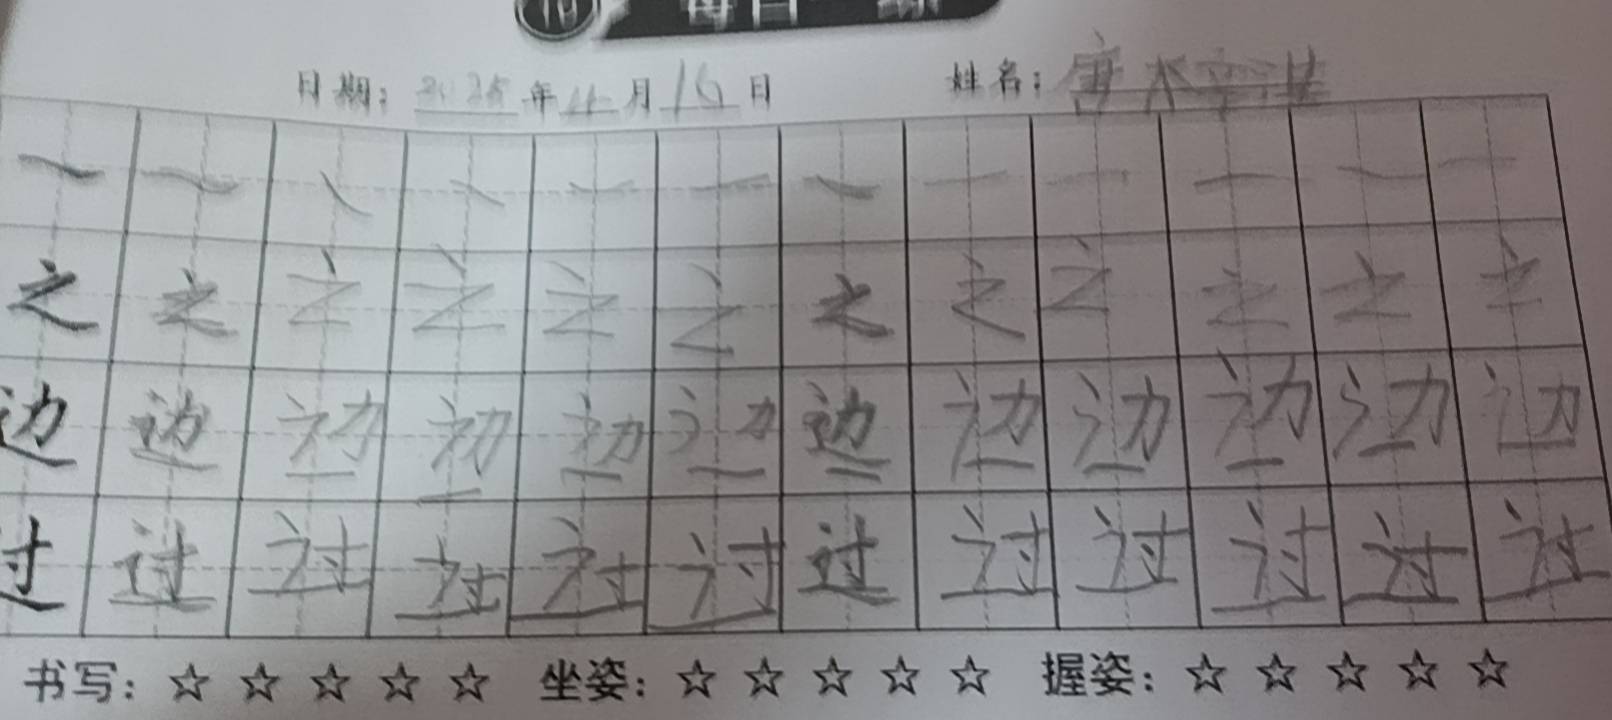 10 每日一练
日期：2025年4月16日 姓名：唐
之 之 之 之 之 之 之 之 之 之 之 之
边 边 边 边 边 边 边 边 边 边 边 边
过 过 过 过 过 过 过 过 过 过 过 过
书写：☆ ☆ ☆ ☆ ☆ 坐姿：☆ ☆ ☆ ☆ ☆ 握姿：☆ ☆ ☆ ☆ ☆